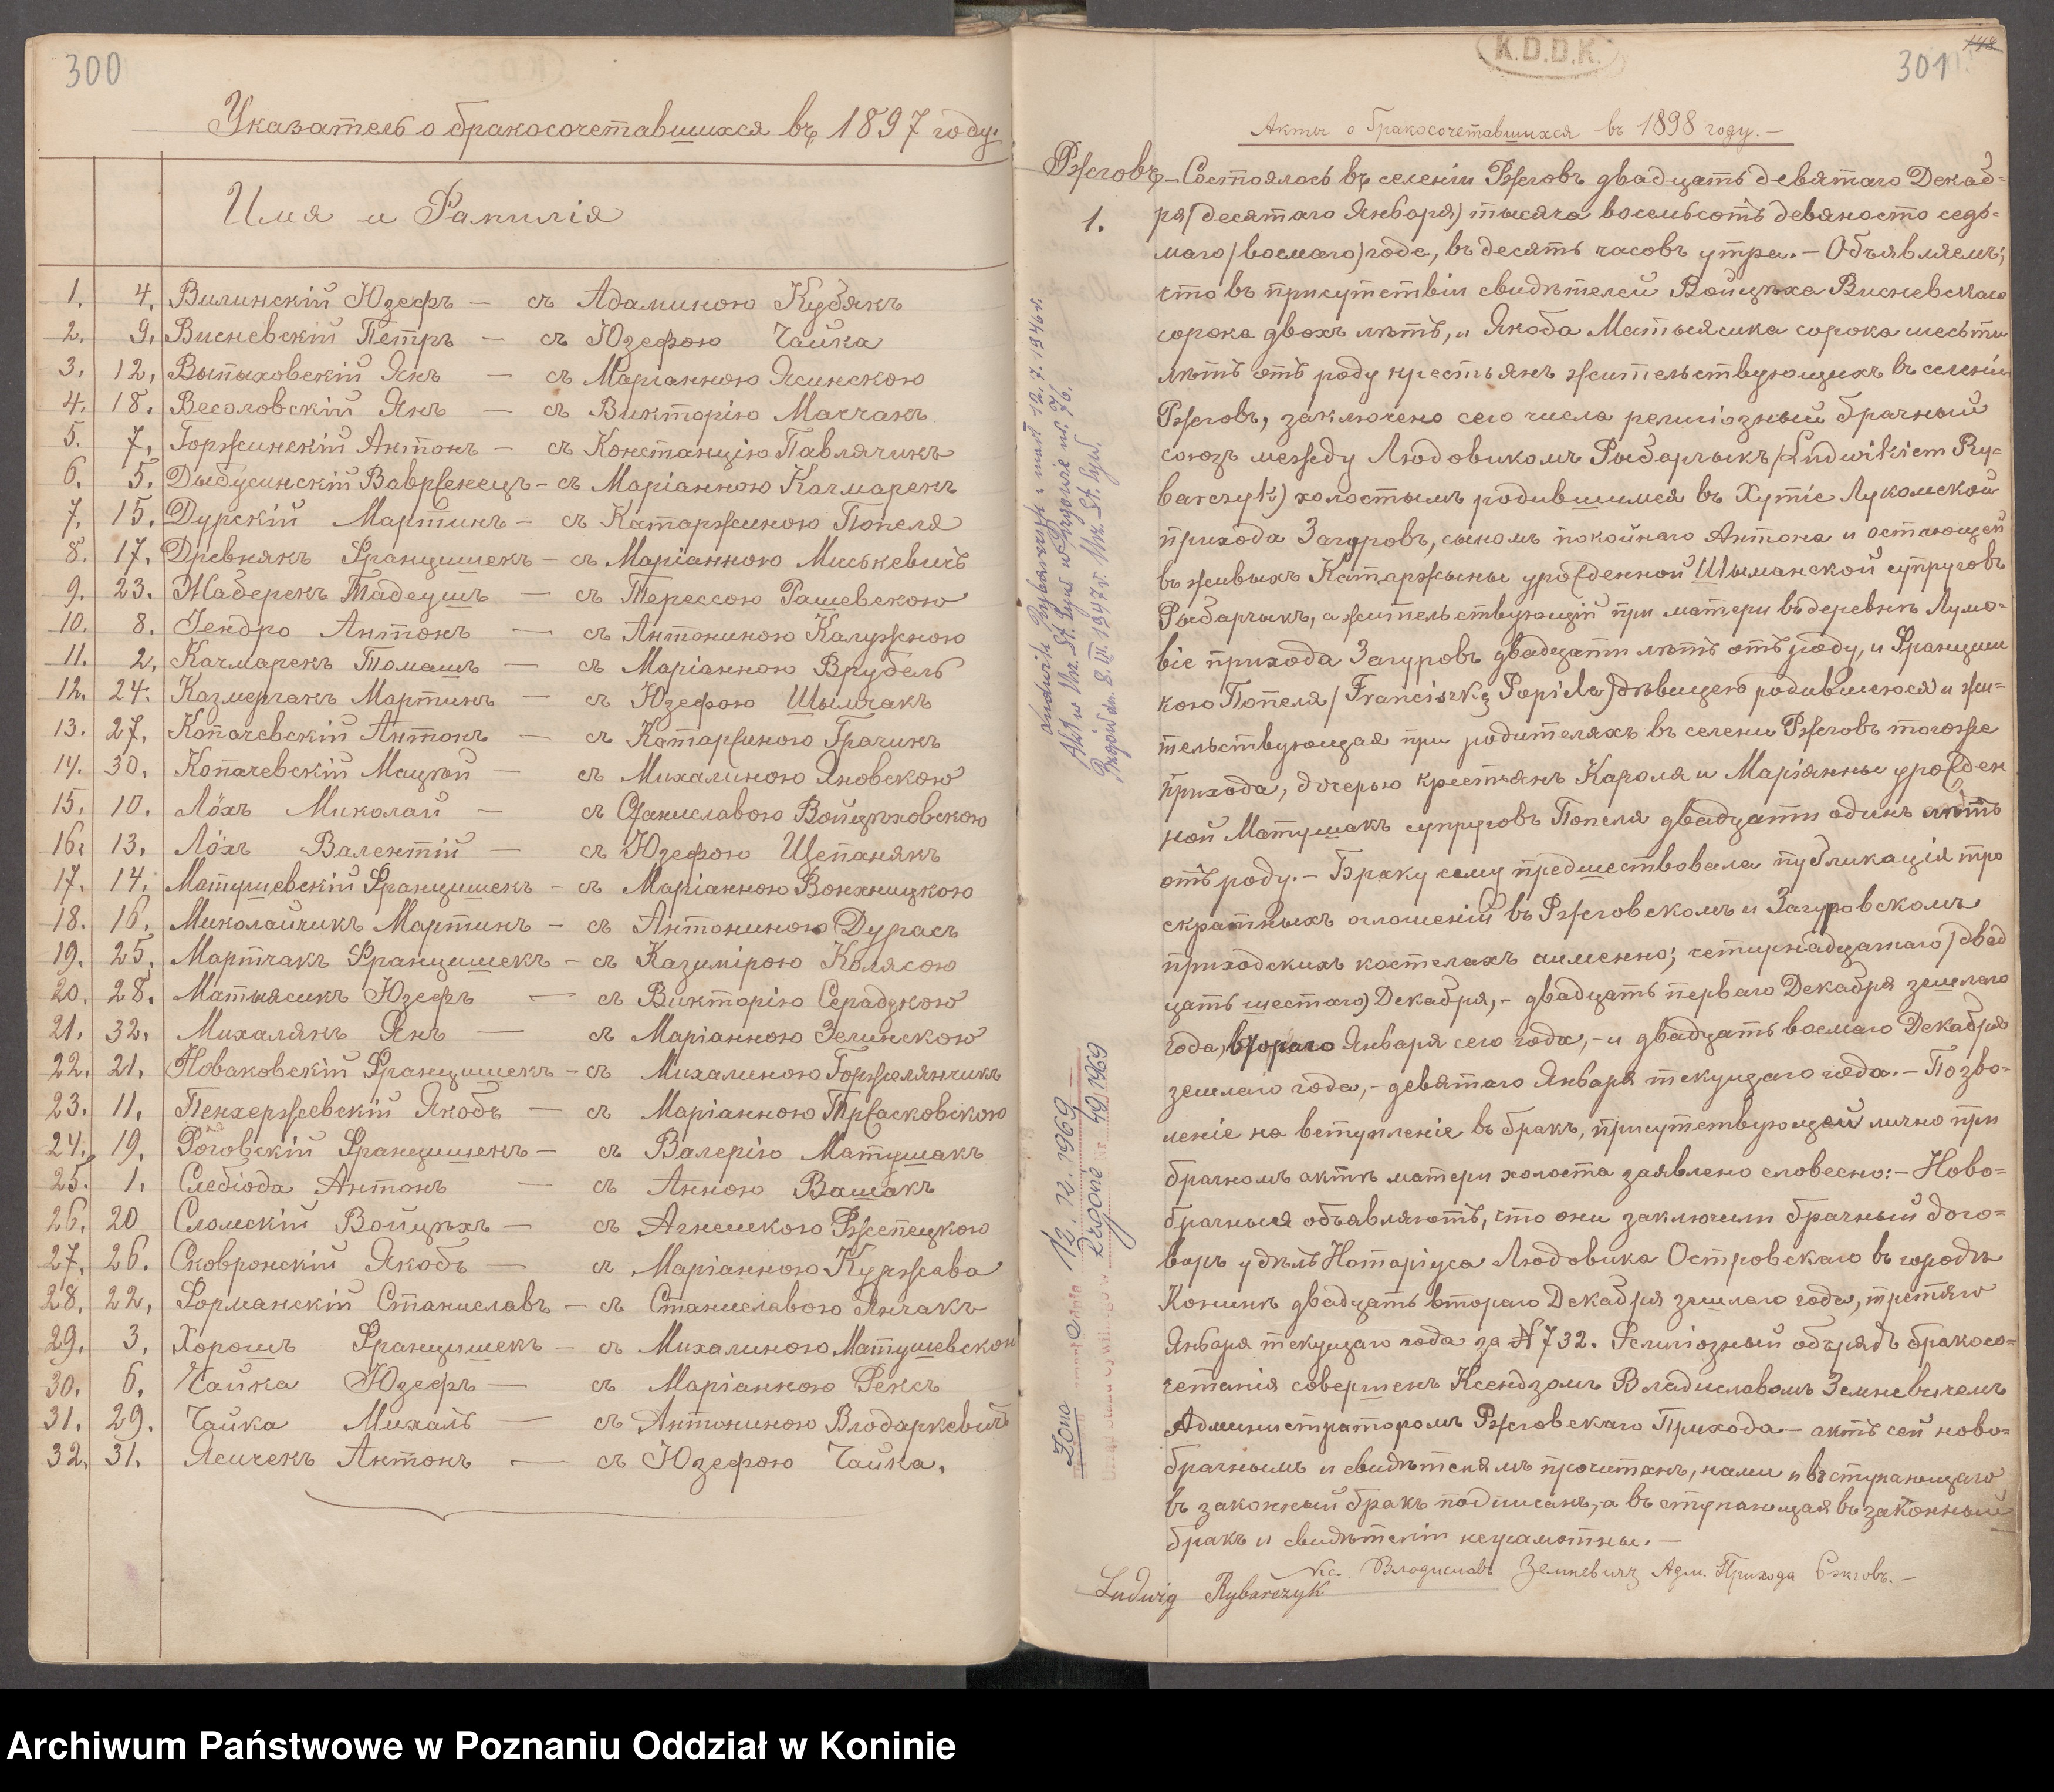 300
Указатель о бракосочетавшихся въ 1897 году.
Имя и Фамилія
1. 4. Вилинскій Юзефъ — съ Адаминою Кубякъ
2. 9. Висневскій Петръ — съ Юзефою Чайка
3. 12. Выпыховскій Янъ — съ Маріанною Ясинскою
4. 18. Весоловскій Янъ — съ Викторію Маччакъ
5. 7. Горжинскій Антонъ — съ Констанцію Павлячикъ
6. 5. Дыбусинскій Ваврженецъ — съ Маріанною Качмарекъ
7. 15. Дурскій Мартинъ — съ Катаржиною Попеля
8. 17. Древнякъ Францишекъ — съ Маріанною Миськевичъ
9. 23. Жадерекъ Тадеушъ — съ Терессою Рашевскою
10. 8. Іендро Антонъ — съ Антониною Калужною
11. 2. Качмарекъ Томашъ — съ Маріанною Врубель
12. 24. Казмерчакъ Мартинъ — съ Юзефою Шымчакъ
13. 27. Копачевскій Антонъ — съ Катаржиною Грачикъ
14. 30. Копачевскій Мацѣй — съ Михалиною Яновскою
15. 10. Лёхъ Миколай — съ Станиславою Войцѣховскою
16. 13. Лёхъ Валентій — съ Юзефою Щепанякъ
17. 14. Матушевскій Францишекъ — съ Маріанною Вонхницкою
18. 16. Миколайчикъ Мартинъ — съ Антониною Дугасъ
19. 25. Мартчакъ Францишекъ — съ Казимірою Колясою
20. 28. Матыясикъ Юзефъ — съ Викторію Серадзкою
21. 32. Михалякъ Янъ — съ Маріанною Зелинскою
22. 21. Новаковскій Францишекъ — съ Михалиною Горжелянчикъ
23. 11. Пенхержевскій Якобъ — съ Маріанною Тржасковскою
24. 19. Роговскій Францишекъ — съ Валерію Матушакъ
25. 1. Слебіода Антонъ — съ Анною Вашакъ
26. 20 Сломскій Войцѣхъ — съ Агнешкою Ржепецкою
27. 26. Сковронскій Якобъ — съ Маріанною Куржава
28. 22. Форманскій Станиславъ — съ Станиславою Янчакъ
29. 3. Хорошъ Францишекъ — съ Михалиною Матушевскою
30. 6. Чайка Юзефъ — съ Маріанною Рексъ
31. 29. Чайка Михалъ — съ Антониною Влодаркевичъ
32. 31. Ясичекъ Антонъ — съ Юзефою Чайка.
K.D.D.K.
148.
301
Акты о бракосочетавшихся въ 1898 году. —
Ржговъ
1.
Состоялось въ селеніи Ржговъ двадцать девятаго Декаб=
ря (десятаго Января) тысяча восемьсотъ девяносто седь=
маго (восмаго) года, въ десять часовъ утра. — Объявляемъ,
что въ присутствіи свидѣтелей Войцѣха Висневскаго
сорока двохъ лѣтъ, и Якоба Матыясика сорока шесьти
лѣтъ отъ роду крестьянъ жительствующихъ въ селеніи
Ржговъ, заключено сего числа религіозный брачный
союзъ между Людовикомъ Рыбарчыкъ (Ludwikiem Ry=
barczyk) холостымъ родившимся въ Хутіе Лукомской
прихода Загуровъ, сыномъ покойнаго Антона и остающей
въ живыхъ Катаржыны урожденной Шыманской супруговъ
Рыбарчыкъ, а жительствующій при матери въ деревнѣ Лумо=
віе прихода Загуровъ двадцати лѣтъ отъ роду, и Францишкою
Попеля (Franciszką Popiela) дѣвицею родившеюся и жи=
тельствующая при родителяхъ въ селеніи Ржговъ тогоже
прихода, дочерью крестьянъ Кароля и Маріянны урожден
ной Матушакъ супруговъ Попеля двадцати одинъ лѣтъ
отъ роду. — Браку сему предшествовала публикація тро
екратныхъ оглошеній въ Ржговскомъ и Загуровскомъ
приходскихъ костелахъ аименно; четырнадцатаго (двад
цать шестаго) Декабря, — двадцать перваго Декабря зешлаго
года, втораго Января сего года, — и двадцать восмаго Декабря
зешлаго года, — девятаго Января текущаго года. — Позво=
леніе на вступленіе въ бракъ, присутствующей лично при
брачномъ актѣ матери холоста заявлено словесно: — Ново=
брачныя объявляютъ, что они заключили брачный дого=
воръ у дѣлъ Нотаріуса Людовика Островскаго въ городѣ
Конинѣ двадцать втораго Декабря зешлаго года, третяго
Января текущаго года за N 732. Религіозный обърядъ бракосо=
четанія совершенъ Ксендзомъ Владиславомъ Земневичемъ
Администраторомъ Ржговскаго Прихода — актъ сей ново=
брачнымъ и свидѣтелямъ прочитанъ, нами и вступающаго
въ законный бракъ подписанъ, а въступающая въ законный
бракъ и свидѣтели неграмотны. —
Кс. Владиславъ Земневичъ Адм. Прихода Ржговъ. —
Ludwig Rybarczyk
Archiwum Państwowe w Poznaniu Oddział w Koninie